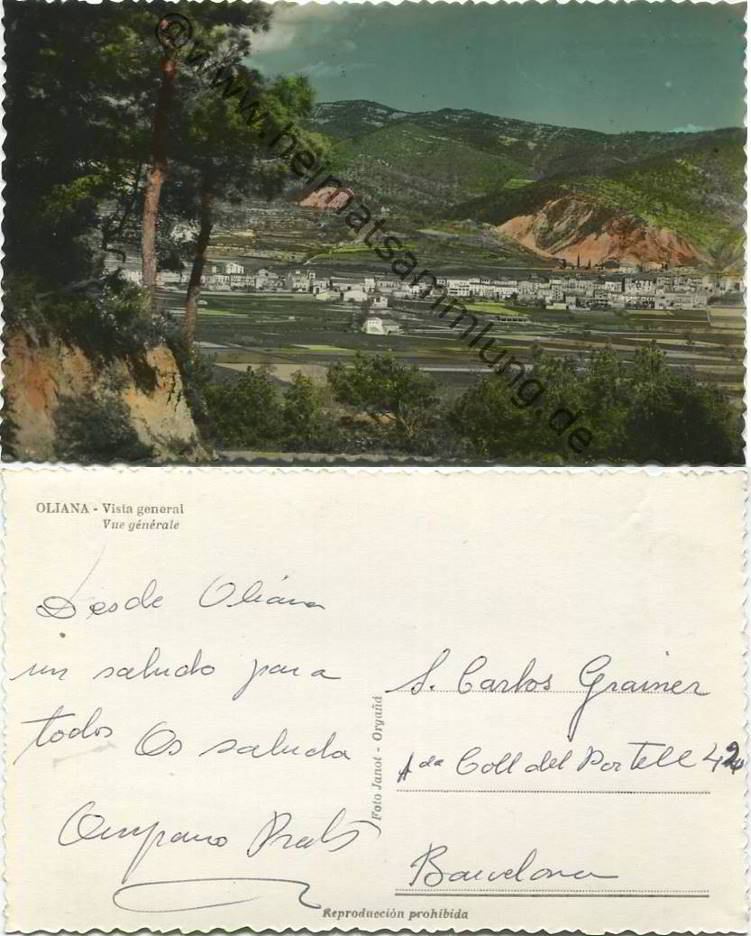 ©www.heimatsammlung.de
OLIANA - Vista general
Vue générale
Desde Oliana
un saludo para
todos Os saluda
Amparo Prats
Foto Janot - Orgañá
S. Carlos Grainer
Ada Coll del Portell 42
Barcelona
Reproducción prohibida